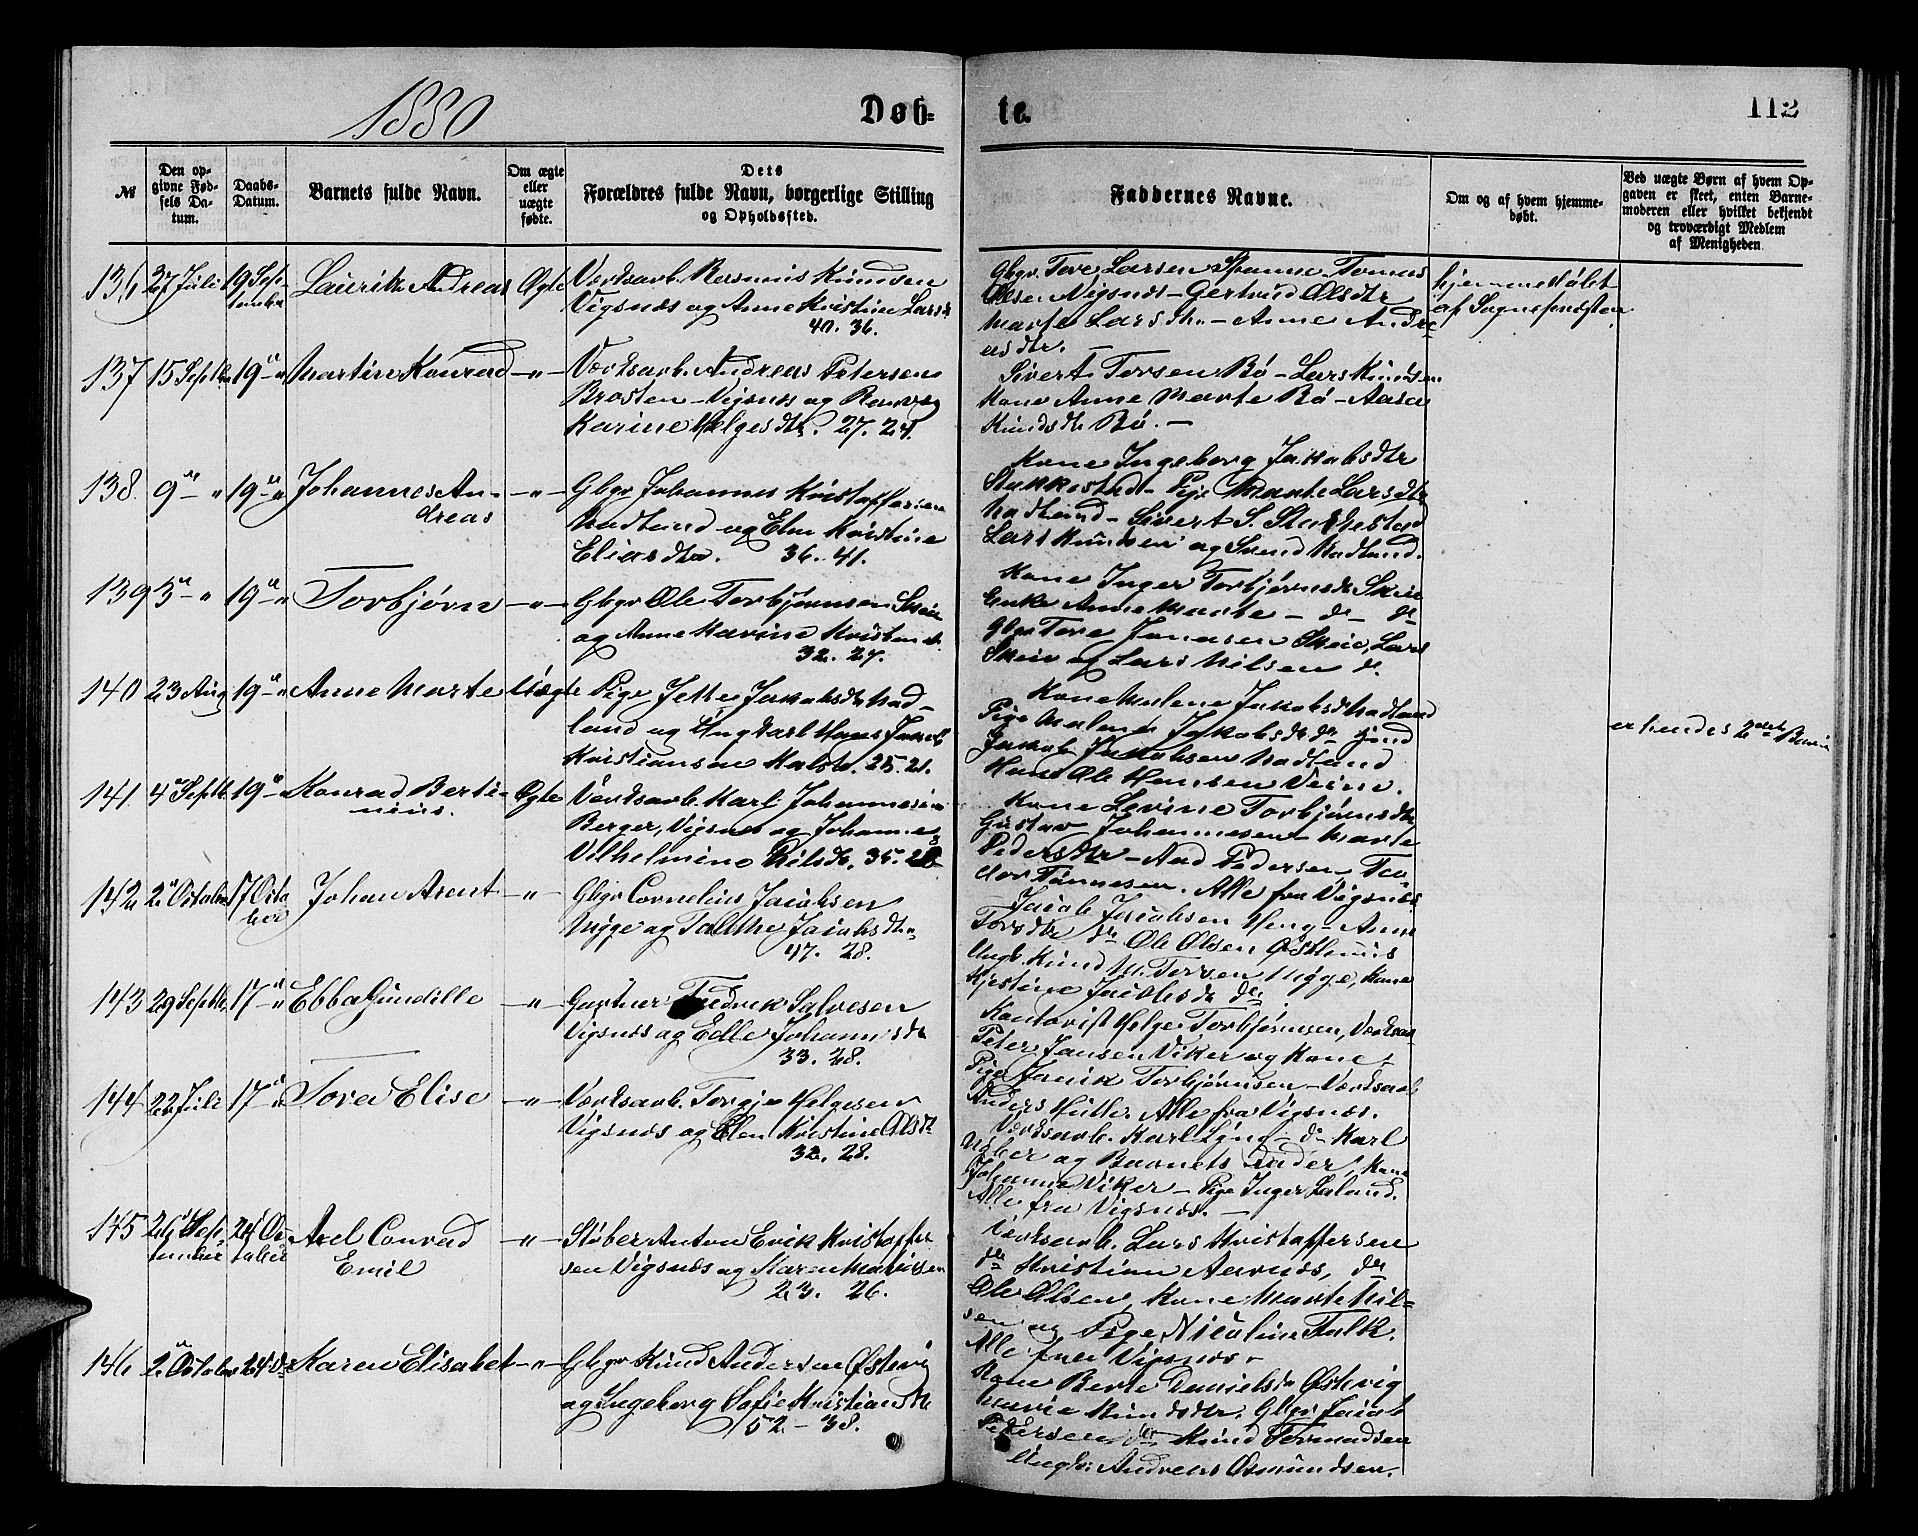 1880
Døb=
te.
112
№
Den op-
givne Fød-
sels Da-
tum.
Daabs-
Datum.
Barnets fulde Navn.
Om ægte
eller
uægte
fødte.
Dets
Forældres fulde Navn, borgerlige Stilling
og Opholdssted.
Faddernes Navne.
Om og af hvem hjemme-
døbt.
Ved uægte Børn af hvem Op-
gaven er skeet, enten Barne-
moderen eller hvilket bekjendt
og troværdigt Medlem
af Menigheden.
136 27 Juli 19 Sept-
ember
Andreas Ægte
Værksarb. Rasmus Knudsen
Vigsnæs og Anne Kristine Larsdr
40. 36.
Gbgr. Tore Larsen Tomas
Olsen Vigsnæs - Gertrud Olsdtr
Marte Larsdtr. - Anne Andre
asdtr. -
hjemmedøbt
af Sognepresten
137 15 Septbr 19 " " Martin Konrad - " -
Værksarb. Andreas Petersen
Brosten - Vigsnæs og
Karine Helgesdtr. 27. 24.
Sivert Torsen Bø - Lars Knudsen
Kone Anne Marte Bø - Aasa
Knudsdtr Bø. -
138. 9 " " 19 " " Johannes An-
dreas
- " -
Gbgr Johannes Kristoffersen
Nadland og Elen Kristine
Eliasdtr. 36. 41.
Kone Ingeborg Jakobsdtr
Stakkestad - Pige Marte Larsdtr
Nadland - Sivert S. Stakkestad
Lars Knudsen og Svend Nadland.
139 3 " " 19 " " Torbjørn - " -
Gbgr Ole Torbjørnsen Skeie
og Anne Karine Kristensdr.
32. 27.
Kone Inger Torbjørnsdr Skeie
Enke Anne Marte - do - do
Gbgr Tore Jonasen Skeie, Lars
Skeie og Lars Nilsen do
140 23 Aug 19 " " Anne Marte Uægte
Pige Jette Jakobsdtr Nad-
land og Ungkarl Hans Jakob
Kristiansen 25. 21.
Kone Malene Jakobsdr Nadland
Pige Malene Jakobsdtr do
Jakob Jakobsen Nadland
Ole Hansen Veine.
erkendes 2det Barn
141 4 Septbr. 19 " Konrad Berti-
nius.
Ægte
Værksarb. Karl Johannesen
Berger, Vigsnæs og Johanne
Vilhelmine Nilsdr. 35. 28
Kone Levine Torbjørnsdtr
Gustav Johannesen - Marte
Pedersdtr - Aad Pedersen - Teo-
dor Tønnesen. Alle fra Vigsnæs
142 2 October 17 Octo
ber
Johan Arent - " -
Gbgr Cornelius Jacobsen
Mygge og Talette Jacobsdtr
47. 28.
Jacob Jacobsen Heng - Anne
Torsdtr do Ole Olsen Østhuus
Ungk. Knud M. Torsen Mygge, Kone
Kjistine Jacobsdr do
143 29 Septbr. 17 " " Ebba Gundille - " -
Gartner Fredrik Salvesen
Vigsnæs og Edle Johannisdr
33. 28.
Kontorist Helge Torbjørnsen, Værksar
Peter Jansen Viker og Kone,
Pige Torbjørnsen - Værksarb
Anders Alle fra Vigsnæs.
144 22 Juli 17 " " Tora Elise - " -
Værksarb. Torgje Helgesen
Vigsnæs og Elen Kristine Olsdtr
32. 28.
Værksarb. Karl - do Karl
og Barnets Fader, Kone
Johanne Viker - Pige Inger Loland.
Alle fra Vigsnæs. -
145 26 Sept-
ember
24 Oc
tober
Axel Conrad
Emil
- " -
Støber Anton Erik Kristoffer
sen Vigsnæs og Karen
23. 26.
Værksarb. Lars Kristoffersen
do Kristian Aarnæs, do
Ole Olsen, Kone Marte Nil-
sen og Pige Nicoline Falk.
Alle fra Vigsnæs -
146 2 October 24 do Karen Elisabet - " -
Gbgr Knud Andersen Østevig
og Ingeborg Sofie Kristiansdtr
52 - 38.
Kone Berte Danielsdr Østevig
Marie Knudsdtr. Gbgr Jacob
Pedersen do Knud Tormodsen
Ungk: Andreas Osmundsen.